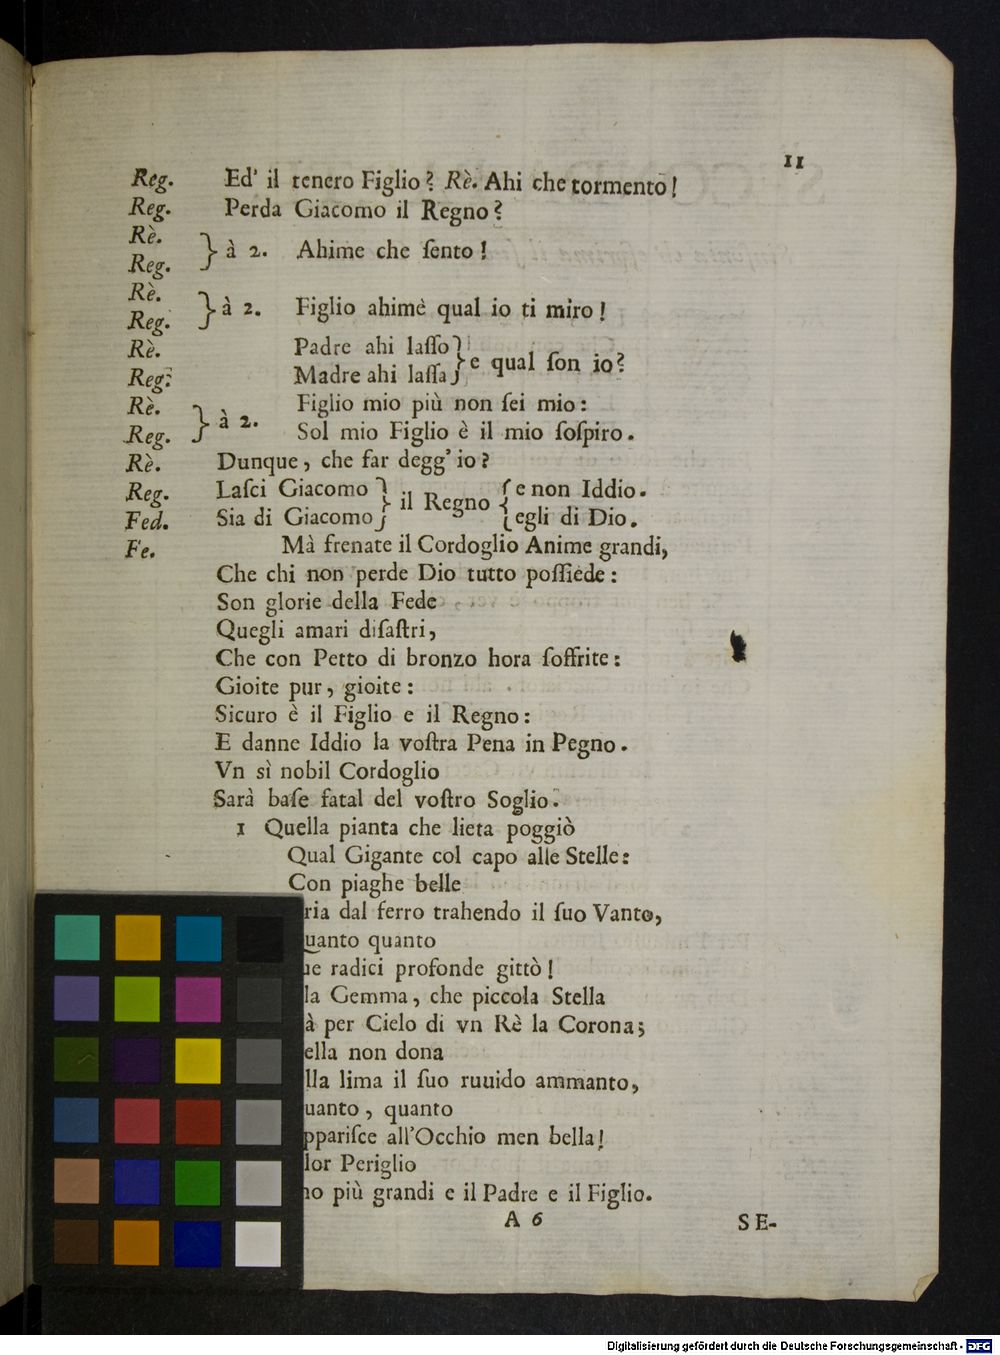 11
Reg. Ed' il tenero Figlio? Rè. Ahi che tormento!
Reg. Perda Giacomo il Regno?
Rè.
Reg. } à 2. Ahime che ſento!
Rè.
Reg. } à 2. Figlio ahimè qual io ti miro!
Rè. Padre ahi laſſo
Reg. Madre ahi laſſa } e qual ſon io?
Rè. Figlio mio più non ſei mio:
Reg. } à 2. Sol mio Figlio è il mio ſoſpiro.
Rè. Dunque, che far degg' io?
Reg. Laſci Giacomo } il Regno { e non Iddio.
Fed. Sia di Giacomo } { egli di Dio.
Fe. Mà frenate il Cordoglio Anime grandi,
Che chi non perde Dio tutto poſſiede:
Son glorie della Fede
Quegli amari diſaſtri,
Che con Petto di bronzo hora ſoffrite:
Gioite pur, gioite:
Sicuro è il Figlio e il Regno:
E danne Iddio la voſtra Pena in Pegno.
Vn sì nobil Cordoglio
Sarà baſe fatal del voſtro Soglio.
1 Quella pianta che lieta poggiò
Qual Gigante col capo alle Stelle:
Con piaghe belle
ria dal ferro trahendo il ſuo Vanto,
uanto quanto
ue radici profonde gittò!
la Gemma, che piccola Stella
à per Cielo di vn Rè la Corona;
ella non dona
lla lima il ſuo ruuido ammanto,
uanto, quanto
ppariſce all'Occhio men bella!
lor Periglio
no più grandi e il Padre e il Figlio.
A 6 SE-
Digitalisierung gefördert durch die Deutsche Forschungsgemeinschaft - DFG